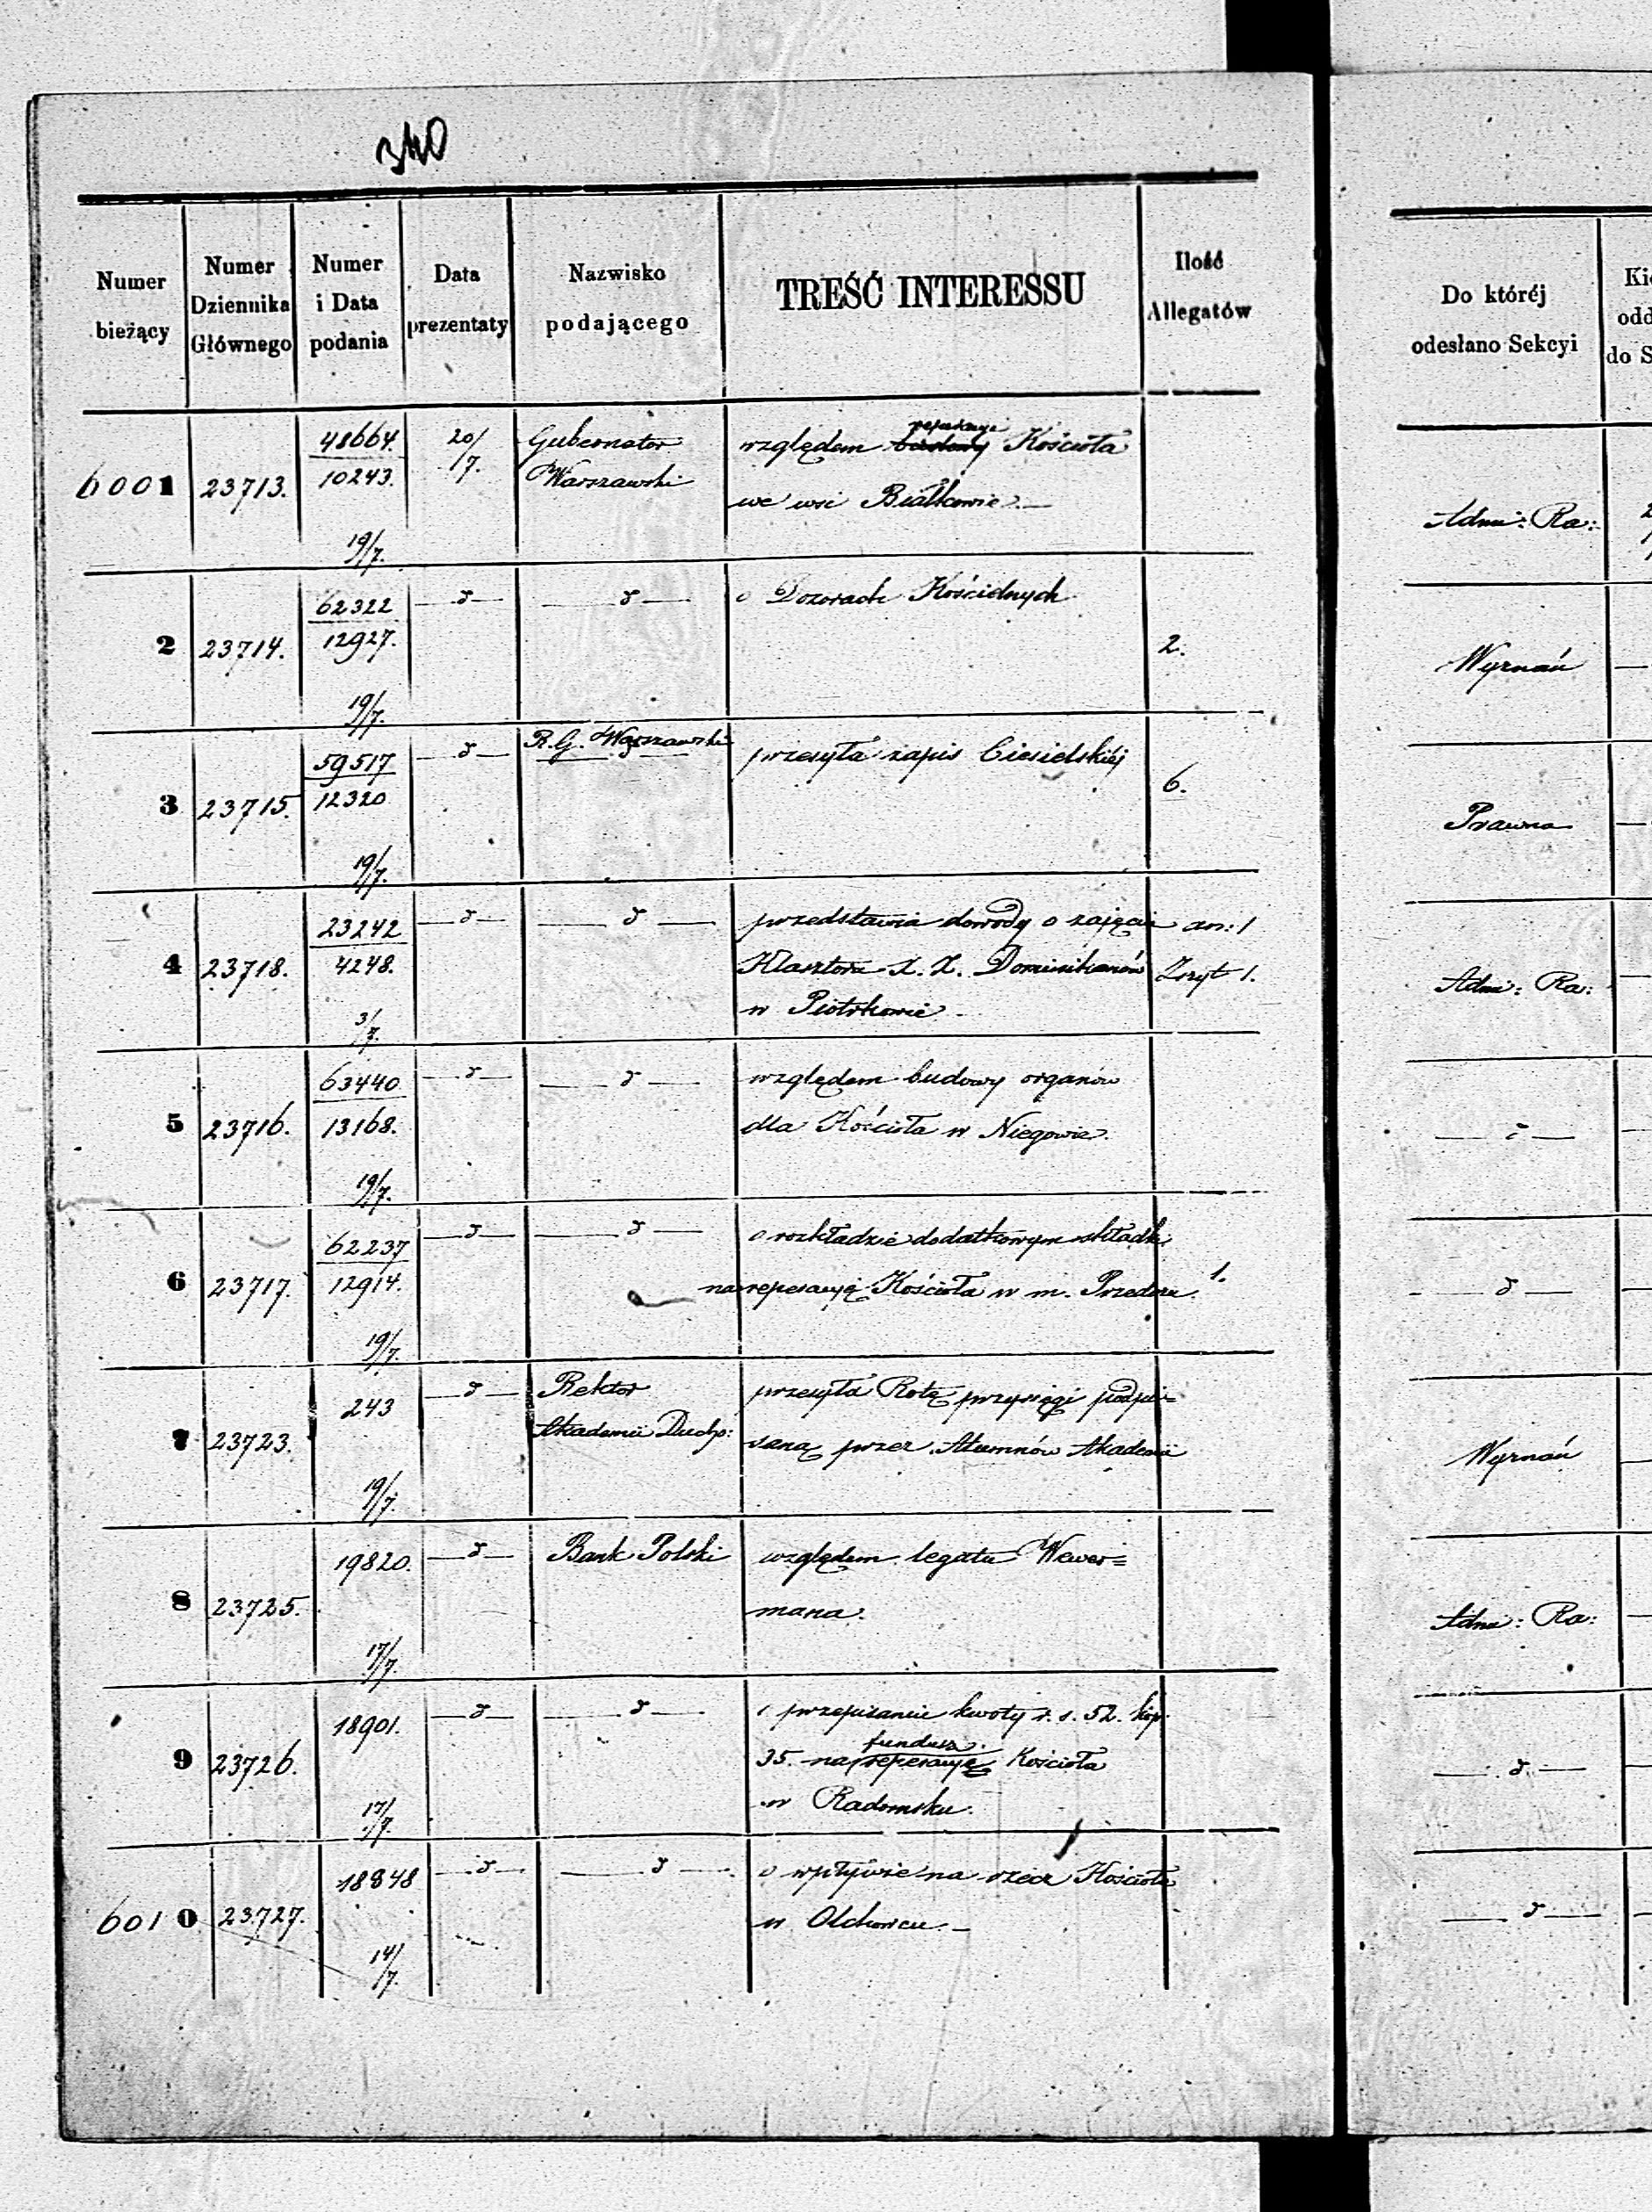 340
Numer bieżący
Numer Dziennika Głównego
Numer i Data podania
Data prezentaty
Nazwisko podającego
TREŚĆ INTERESSU
Ilość Allegatów
Do któréj odesłano Sekcyi
6001 23713. 48664. 10243. 19/7. 20/7. Gubernator Warszawski
względem budowy reperacyi Kościoła
we wsi Białkowie.
Adm: Ra:
2 23714. 62322 12927. 19/7. — d — — d —
o Dozorach Kościelnych
2.
Wyznań
3 23715. 59517 12320 19/7. — d — R. G. Warszawski
przesyła zapis Ciesielskiéj
6.
Prawna
4 23718. 23242 4248. 3/7. — d — — d —
przedstawia dowody o zajęciu an: 1
Klasztoru X. X. Dominikanów Zszyt 1.
w Piotrkowie
Adm: Ra:
5 23716. 63440 13168. 19/7. — d — — d —
względem budowy organów
dla Kościoła w Niegowie.
— d —
6 23717. 62237 12914. 19/7. — d — — d —
o rozkładzie dodatkowym składki
na reperacyą Kościoła w m. Przedborzu. 1.
— d —
7 23723. 243 19/7. — d — Rektor Akademii Ducho:
przesyła Rotę przysięgi podpi=
saną przez Alumnów Akademii
Wyznań
8 23725. 19820. 17/7. — d — Bank Polski
względem legatu Wewer=
mana.
Adm: Ra:
9 23726. 18901. 17/7. — d — — d —
o przepisanie kwoty r. s. 52. kop.
35. na fundusz reperacyi Kościoła
w Radomsku.
— d —
6010 23727. 18848 14/7. — d — — d —
o wpływie na rzecz Kościoła
w Olchowcu.
— d —